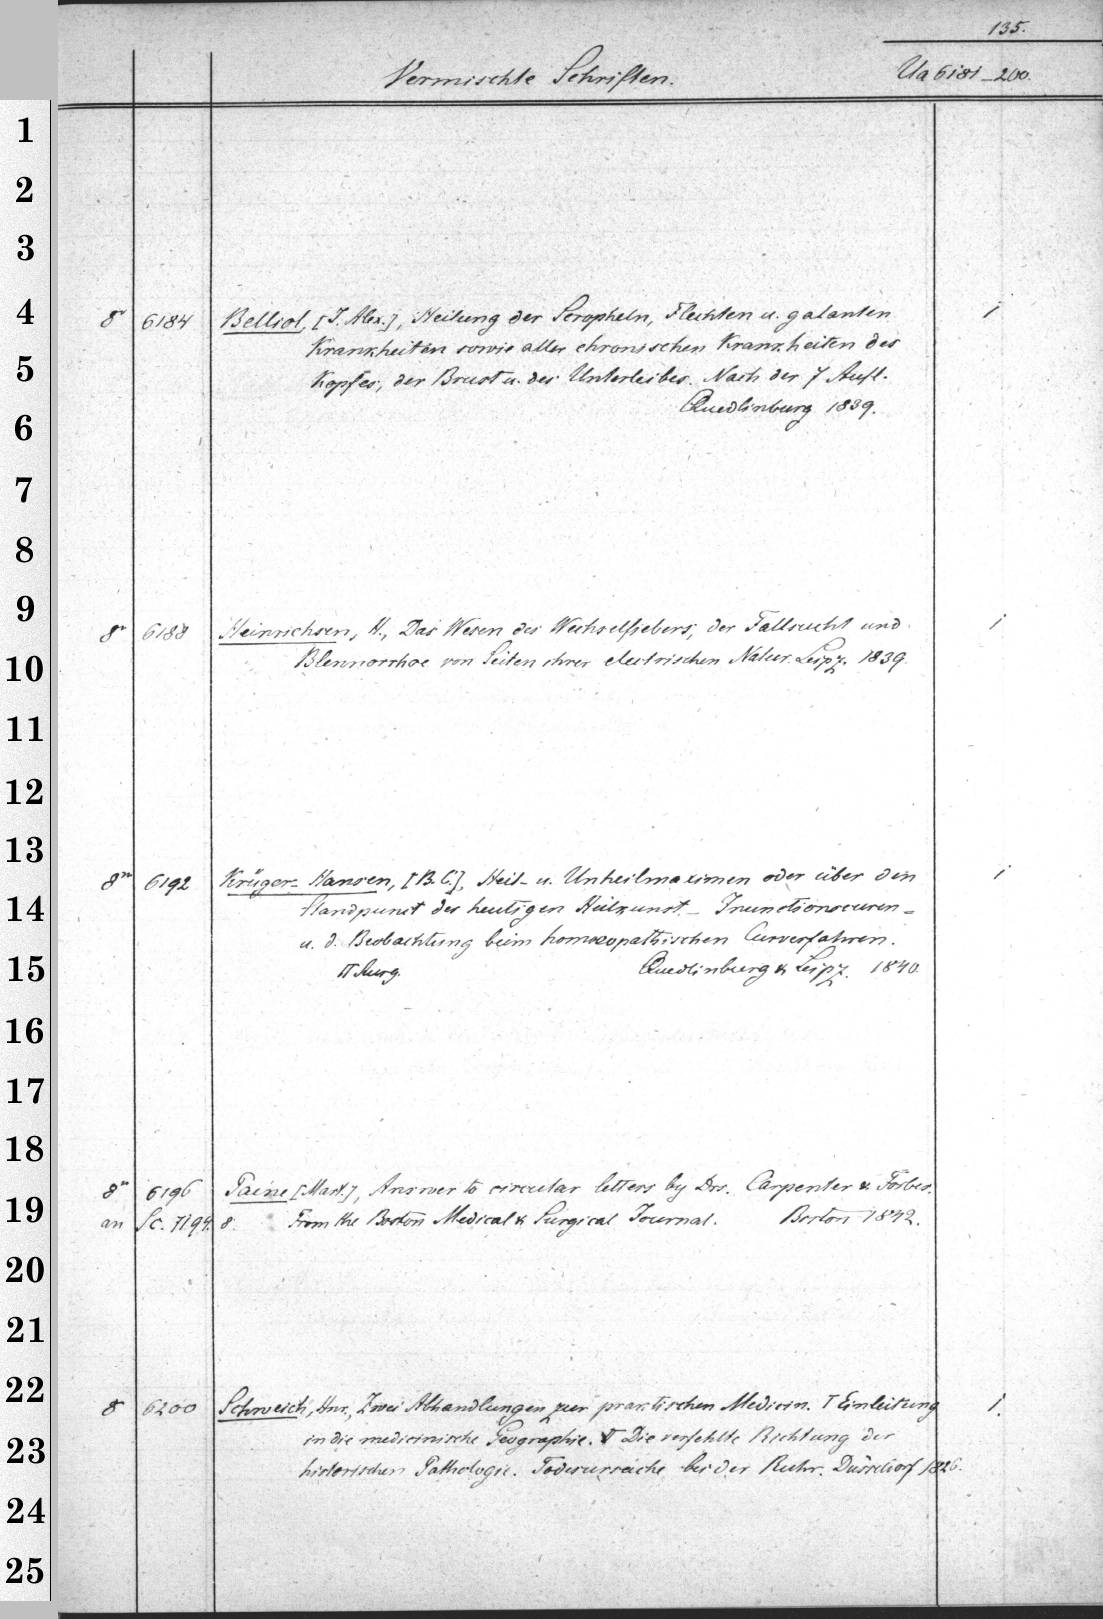 135.
Vermischte Schriften. Ua 6181-200.
1
2
3
4
8° 6184 Belliol, [J. Alex.], Heilung der Scropheln, Flechten u. galanten 1
5
Krankheiten sowie aller chronischen Krankheiten des
Kopfes, der Brust u. des Unterleibes. Nach der 7 Aufl.
6
Quedlinburg 1839.
7
8
9
8° 6188 Heinrichsen, H., Das Wesen des Wechselfiebers, der Fallsucht und 1
10
Blennorrhoe von Seiten ihrer electrischen Natur. Leipz. 1839.
11
12
13
8° 6192 Krüger-Hansen, [B. C.], Heil- u. Unheilmaximen oder über den 1
14
Standpunct der heutigen Heilkunst - Inunctionscuren -
u. d. Beobachtung beim homöopathischen Curverfahren.
15
II Ausg. Quedlinburg & Leipz. 1840.
16
17
18
8° 6196 Paine [Mart.], Answer to circular letters by Drs. Carpenter & Forbes.
19
an Sc. 7194. 8. From the Boston Medical & Surgical Journal. Boston 1842.
20
21
22
8 6200 Schweich, Hnr., Zwei Abhandlungen zur praktischen Medicin. I Einleitung 1.
23
in die medicinische Geographie. II Die verfehlte Richtung der
historischen Pathologie. Todesursache bei der Ruhr. Düsseldorf 1826.
24
25